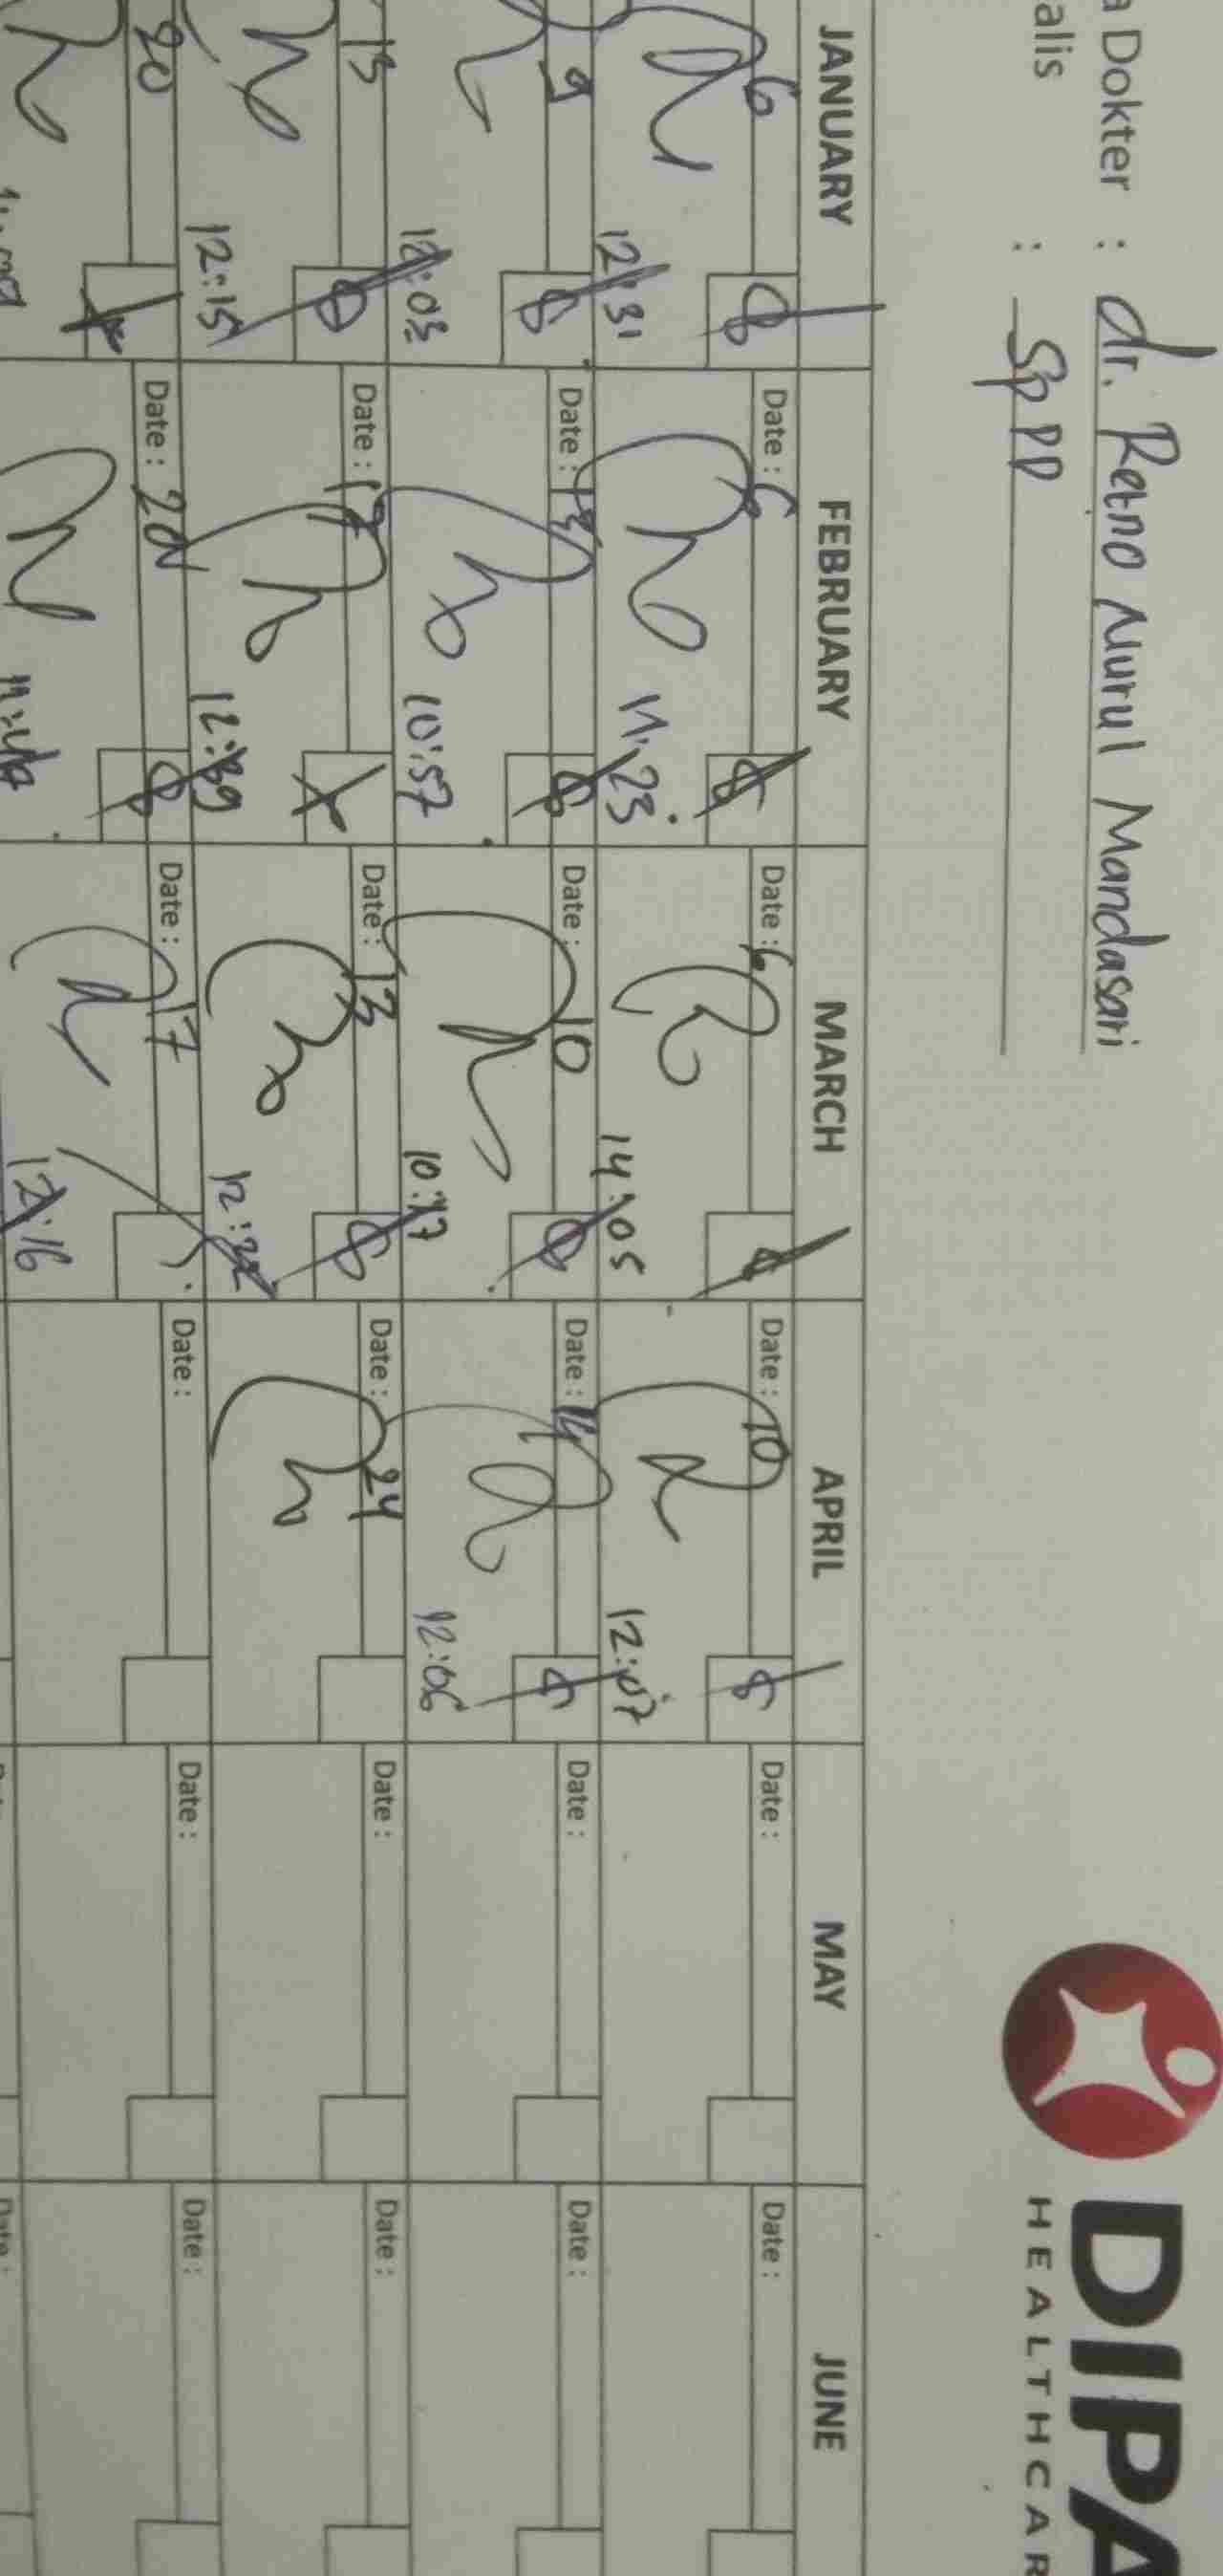 a Dokter : dr. Retno Nurul Mandasari
alis : Sp PD
DIPA
HEALTHCAR
JANUARY FEBRUARY MARCH APRIL MAY JUNE
6 8 Date : 6 8 Date : 6 Date : 10 8 Date : Date :
12:31 11.23 14:05 12:07
9 8 Date : 13 8 Date : 10 8 Date : 14 8 Date : Date :
12:03 10:57 10:17 12:06
13 8 Date : 17 Date : 13 8 Date : 24 Date : Date :
12:15 12:39
20 Date : 20 8 Date : 17 Date : Date : Date :
12:16